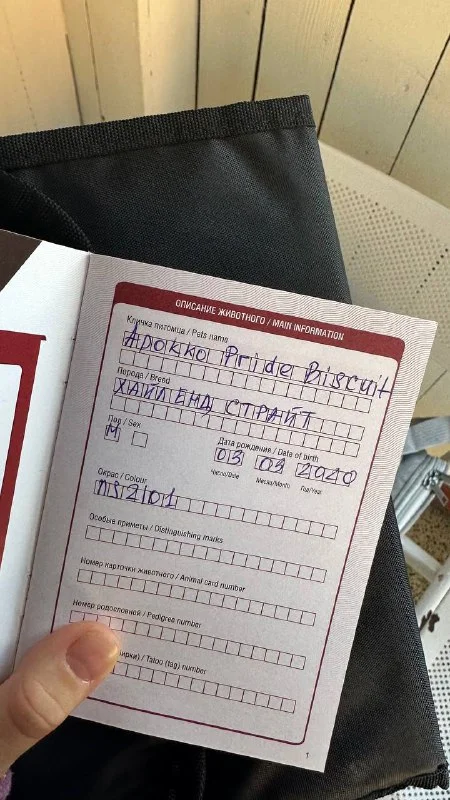 ОПИСАНИЕ ЖИВОТНОГО / MAIN INFORMATION
Кличка питомца / Pets name
Адокко Pride Biscuit
Порода / Breed
ХАЙЛЕНД СТРАЙТ
Пол / Sex
М
Дата рождения / Date of birth
03 03 2020
Число/Date Месяц/Month Год/Year
Окрас / Colour
ns2201
Особые приметы / Distinguishing marks
Номер карточки животного / Animal card number
Номер родословной / Pedigree number
/ Tatoo (tag) number
1